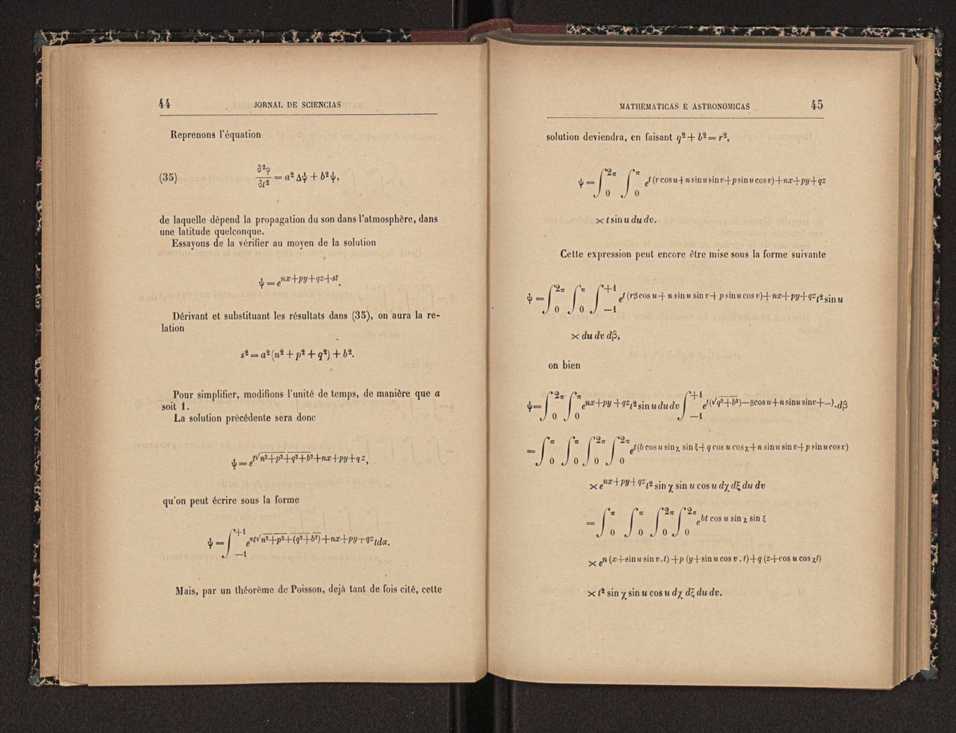 44 JORNAL DE SCIENCIAS
Reprenons l'équation
(35) ∂²φ/∂t² = a² Δψ + b² ψ,
de laquelle dépend la propagation du son dans l'atmosphère, dans
une latitude quelconque.
Essayons de la vérifier au moyen de la solution
ψ = e^{nx+py+qz+st}.
Dérivant et substituant les résultats dans (35), on aura la re-
lation
s² = a² (n² + p² + q²) + b².
Pour simplifier, modifions l'unité de temps, de manière que a
soit 1.
La solution précédente sera donc
ψ = e^{t√(n²+p²+q²+b²)+nx+py+qz},
qu'on peut écrire sous la forme
ψ = ∫_{−1}^{+1} e^{αt√(n²+p²+(q²+b²))+nx+py+qz} tdα.
Mais, par un théorème de Poisson, dejà tant de fois cité, cette
MATHEMATICAS E ASTRONOMICAS 45
solution deviendra, en faisant q² + b² = r²,
ψ = ∫_0^{2π} ∫_0^{π} e^{t (r cos u + n sin u sin v + p sin u cos v) + nx+py+qz}
× t sin u du dv.
Cette expression peut encore être mise sous la forme suivante
ψ = ∫_0^{2π} ∫_0^{π} ∫_{−1}^{+1} e^{t (rβ cos u + n sin u sin v + p sin u cos v) + nx+py+qz} t² sin u
× du dv dβ,
on bien
ψ = ∫_0^{2π} ∫_0^{π} e^{nx+py+qz} t² sin u du dv ∫_{−1}^{+1} e^{t(√(q²+b²)—βcos u + n sin u sin v+—)}.dβ
= ∫_0^{π} ∫_0^{π} ∫_0^{2π} ∫_0^{2π} e^{t(b cos u sin χ sin ξ + q cos u cos χ + n sin u sin v + p sin u cos v)}
× e^{nx+py+qz} t² sin χ sin u cos u dχ dξ du dv
= ∫_0^{π} ∫_0^{π} ∫_0^{2π} ∫_0^{2π} e^{bt cos u sin χ sin ξ}
× e^{n (x+sin u sin v . t) + p (y+sin u cos v . t) + q (z+cos u cos χt)}
× t² sin χ sin u cos u dχ dξ du dv.